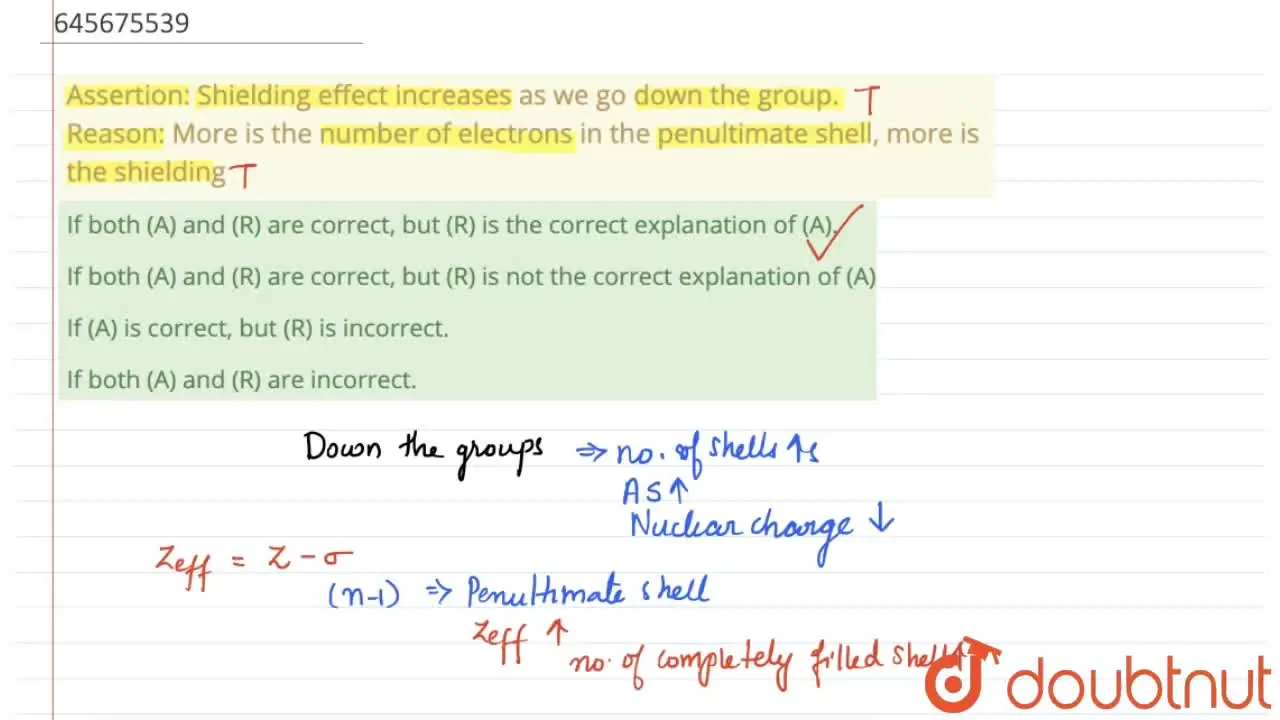 645675539
Assertion: Shielding effect increases as we go down the group. T
Reason: More is the number of electrons in the penultimate shell, more is
the shielding T
If both (A) and (R) are correct, but (R) is the correct explanation of (A).
If both (A) and (R) are correct, but (R) is not the correct explanation of (A)
If (A) is correct, but (R) is incorrect.
If both (A) and (R) are incorrect.
Down the groups ⇒ no. of shells ↑s
AS ↑
Nuclear charge ↓
Zeff = Z - σ
(n-1) ⇒ Penulthmate shell
Zeff ↑
no. of completely filled shells
doubtnut